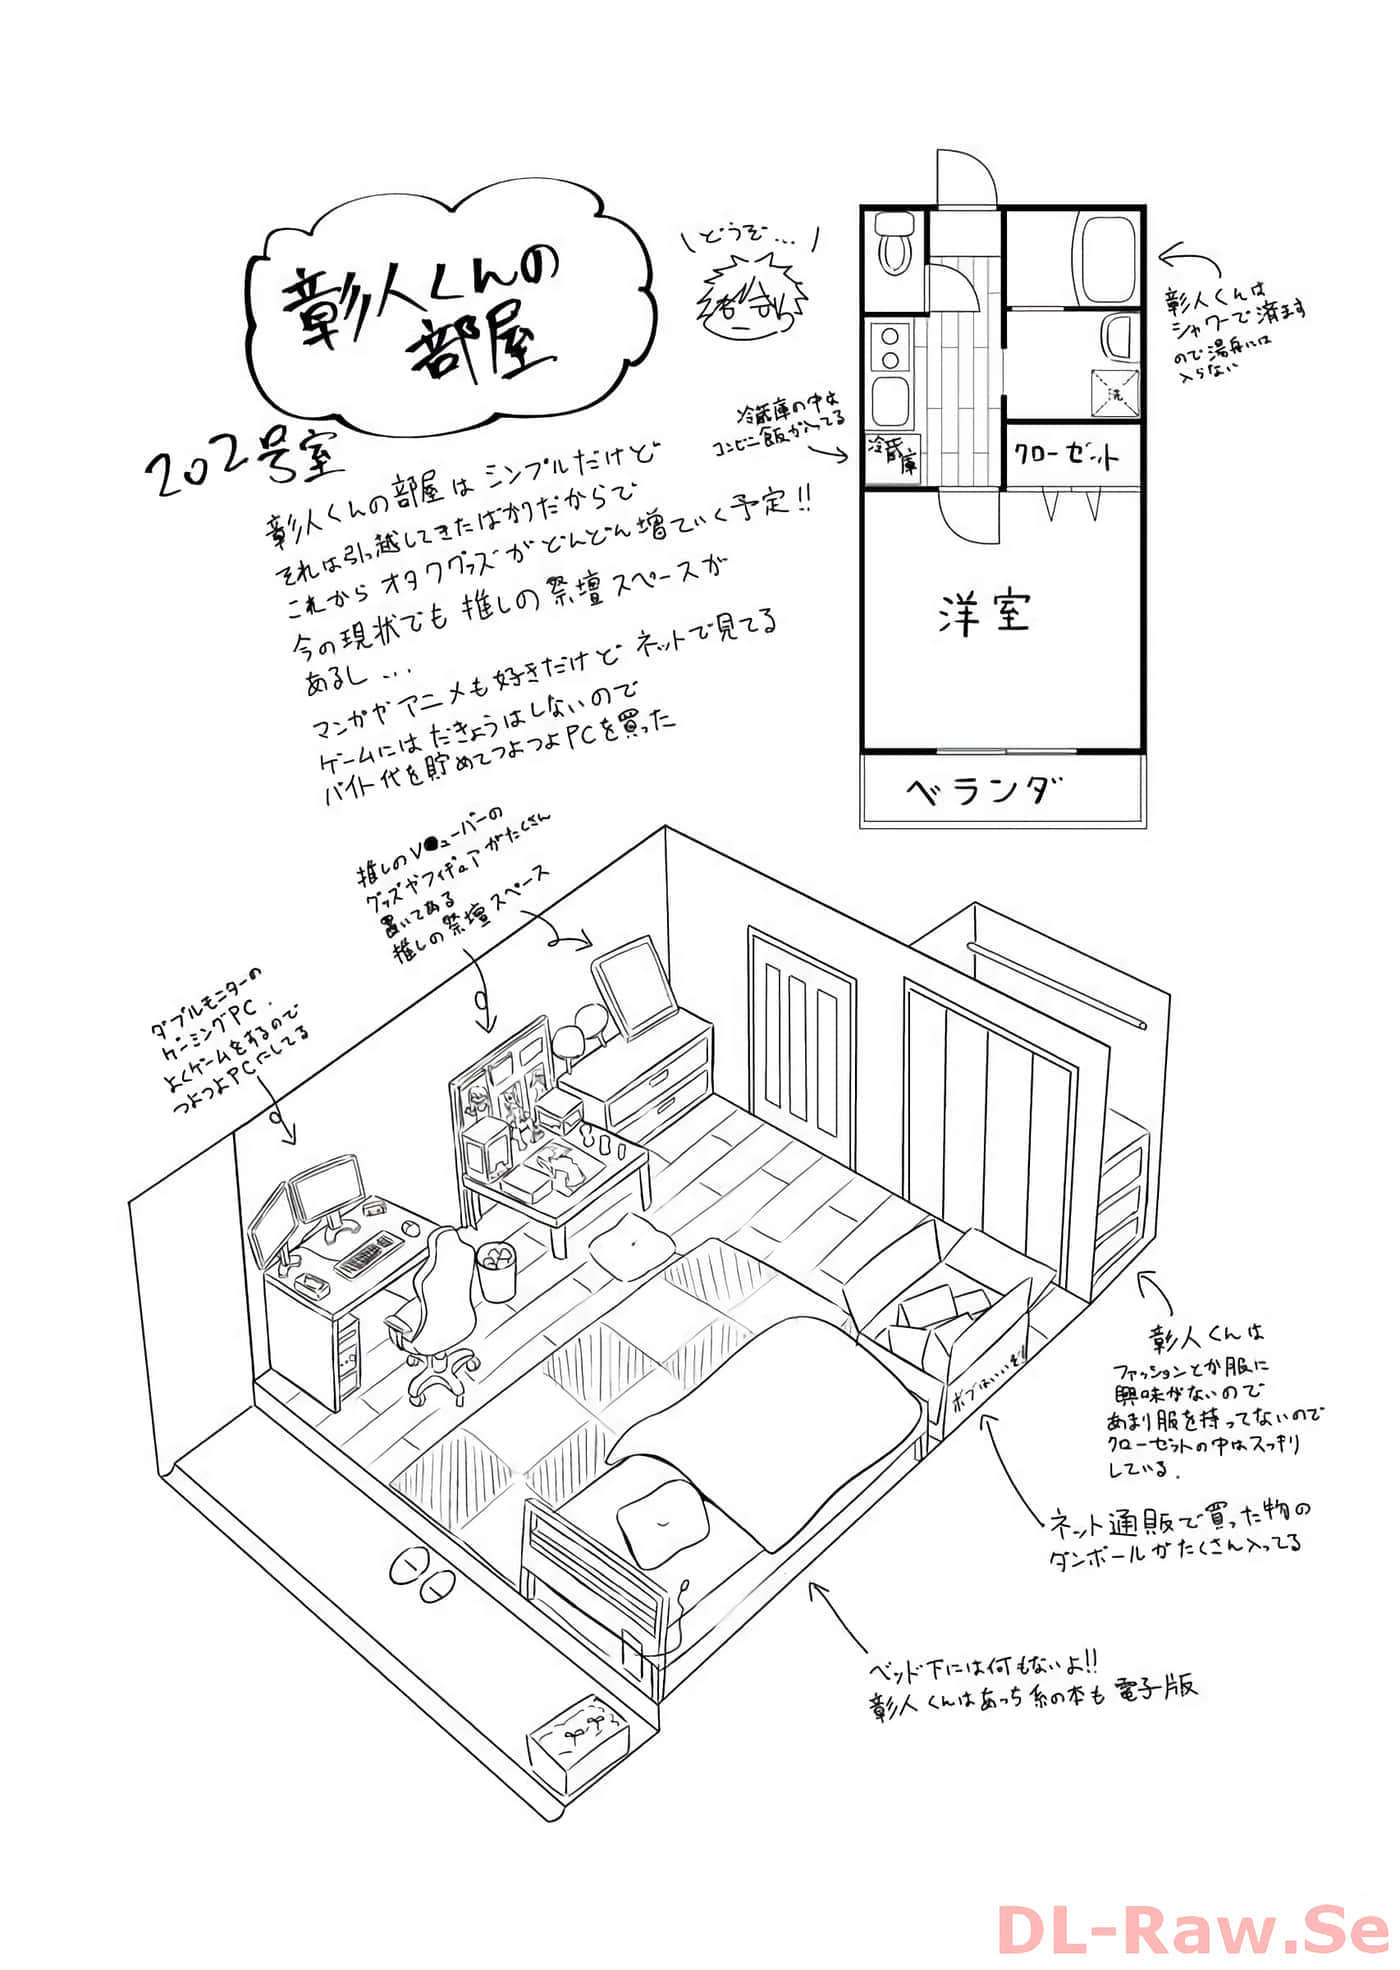 彰人くんの
部屋
\どうぞ…/
202号室
彰人くんの部屋はシンプルだけど
それは引っ越してきたばかりだからで
これからオタクグッズがどんどん増ていく予定!!
今の現状でも推しの祭壇スペースが
あるし…
マンガやアニメも好きだけどネットで見てる
ゲームにはだきょうはしないので
バイト代を貯めてつよつよPCを買った
彰人くんは
シャワーで済ます
ので湯舟には
入らない
冷蔵庫の中は
コンビニ飯が入ってる
冷蔵
庫
洗
クローゼット
洋室
ベランダ
推しのV●ューバーの
グッズやフィギュアがたくさん
置いてある
推しの祭壇スペース
ダブルモニターの
ゲーミングPC.
よくゲームをするので
つよつよPCにしてる
ポプはいいぞ!
彰人くんは
ファッションとか服に
興味がないので
あまり服を持ってないので
クローゼットの中はスッキリ
している.
ネット通販で買った物の
ダンボールがたくさん入ってる
ベッド下には何もないよ!!
彰人くんはあっち系の本も電子版
DL-Raw.Se